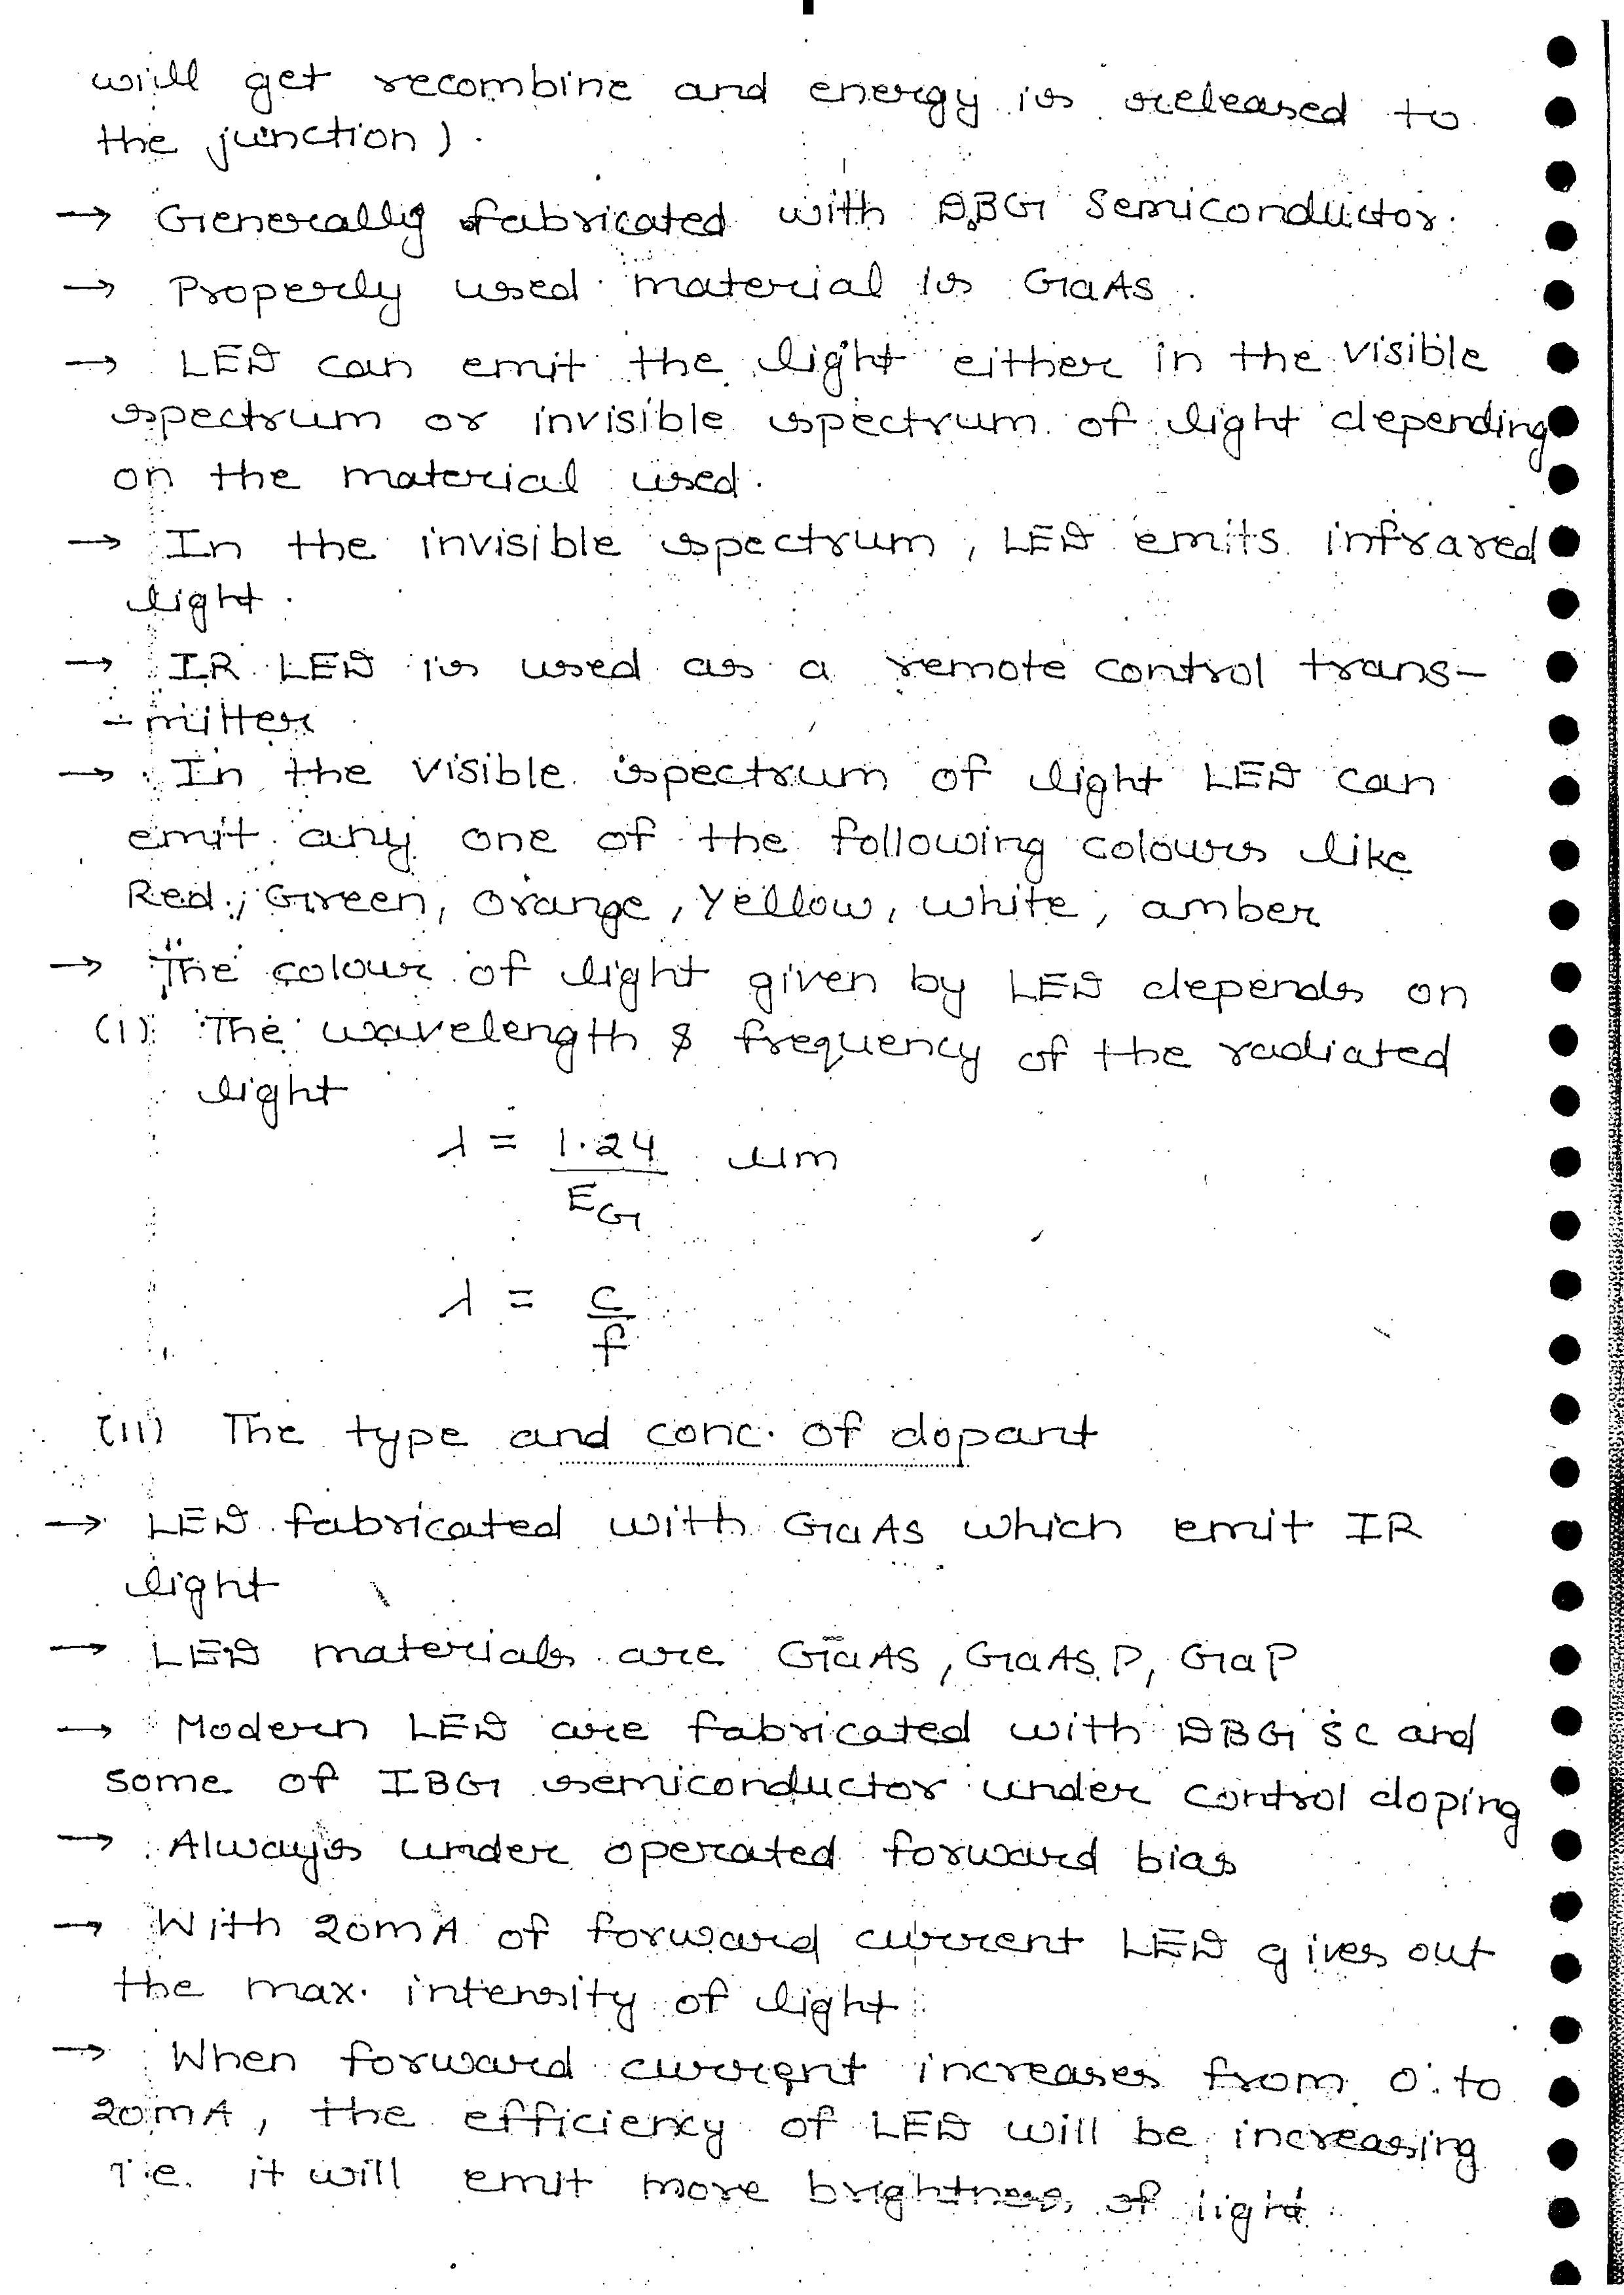 will get recombine and energy is released to
the junction).
→ Generally fabricated with DBG Semiconductor.
→ Properly used material is GaAs.
→ LED can emit the light either in the visible
spectrum or invisible spectrum of light depending
on the material used.
→ In the invisible spectrum, LED emits infrared
light.
→ IR LED is used as a remote control trans-
-mitter
→ In the visible spectrum of light LED can
emit any one of the following colours like
Red, Green, Orange, Yellow, white, amber
→ The colour of light given by LED depends on
(i) The wavelength & frequency of the radiated
light
λ = 1.24 / EG μm
λ = c / f
(ii) The type and conc. of dopant
→ LED fabricated with GaAs which emit IR
light
→ LED materials are GaAs, GaAsP, GaP
→ Modern LED are fabricated with DBG SC and
some of IBG semiconductor under control doping
→ Always under operated forward bias
→ With 20mA of forward current LED gives out
the max. intensity of light
→ When forward current increases from 0 to
20mA, the efficiency of LED will be increasing
i.e. it will emit more brightness of light.